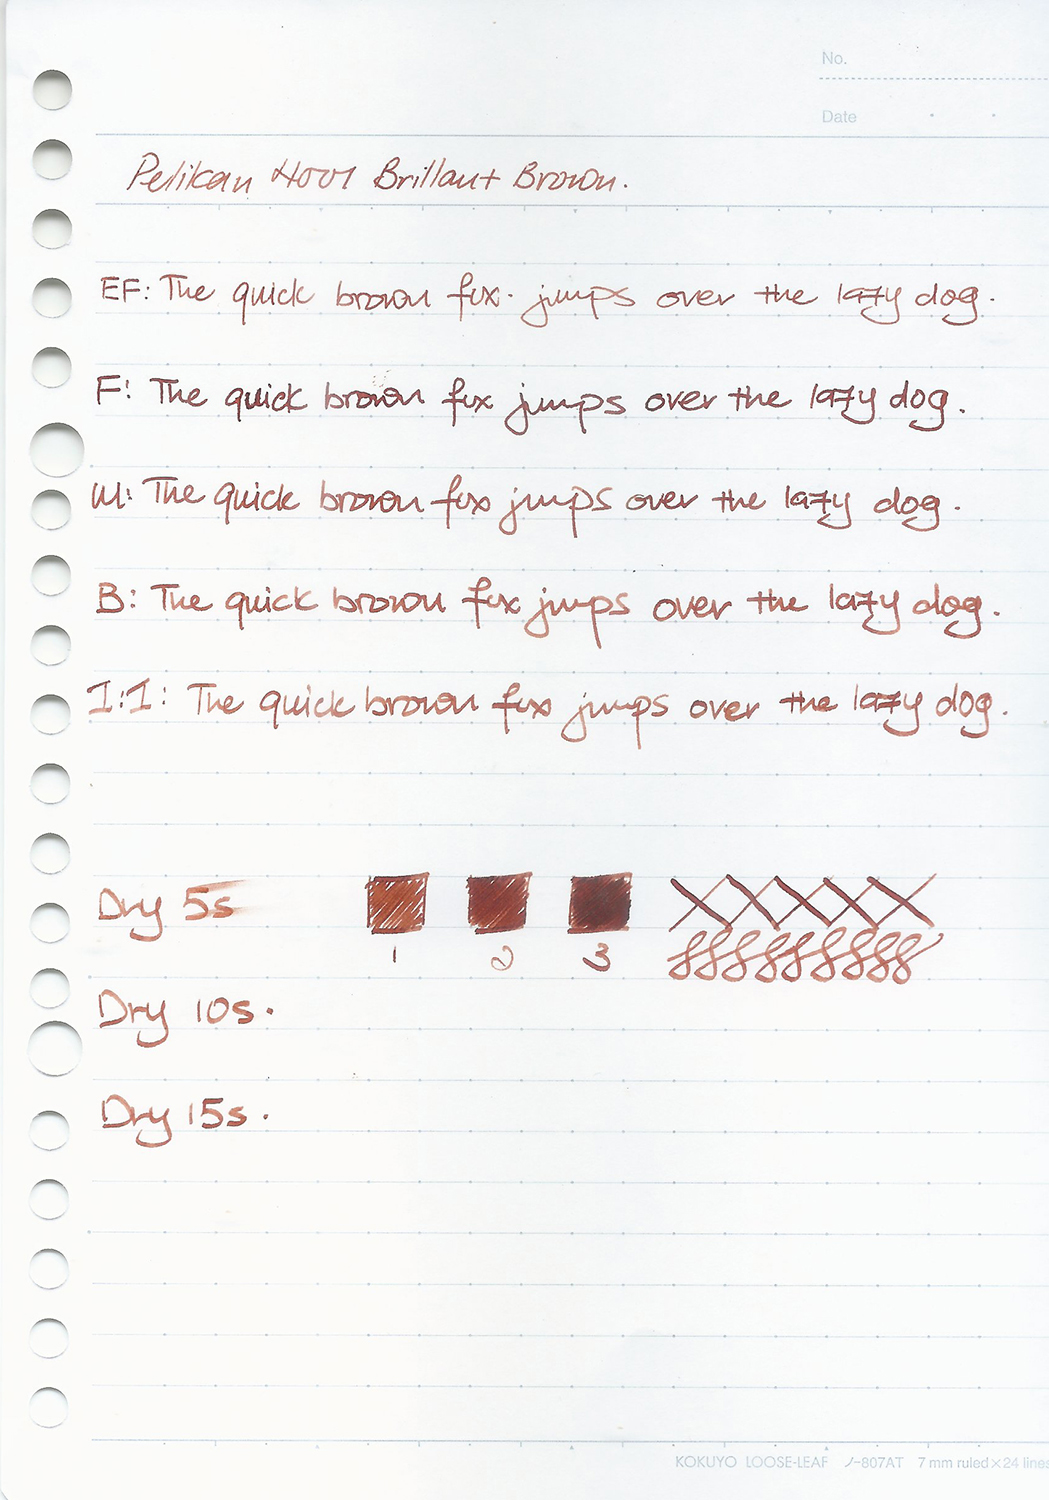 No.
Date
Pelikan 4001 Brillant Brown.
EF: The quick brown fox. jumps over the lazy dog.
F: The quick brown fox jumps over the lazy dog.
M: The quick brown fox jumps over the lazy dog.
B: The quick brown fox jumps over the lazy dog.
1.1: The quick brown fox jumps over the lazy dog.
Dry 5s
1 2 3
Dry 10s.
Dry 15s.
KOKUYO LOOSE-LEAF ノ-807AT 7 mm ruled×24 lines